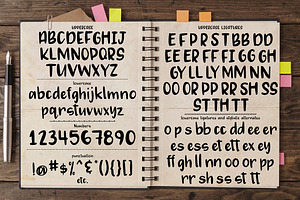 UPPERCASE
ABCDEFGHIJ
KLMNOPQRS
TUVWXYZ
lowercase
abcdefghijklmno
pqrstuvwxyz
Numbers
1234567890
punctuation
etc.
UPPERCASE LIGATURES
E F P R S T BB DD
EE ER FF FI GG GH
GY LL LY MM NN
OO OR PP RR SH SS
ST TH TT
lowercase ligatures and stylistic alternates
o p s bb cc dd ee er
es ess et ett ex ey
ff gh ll nn oo or pp
rr sh ss st tt